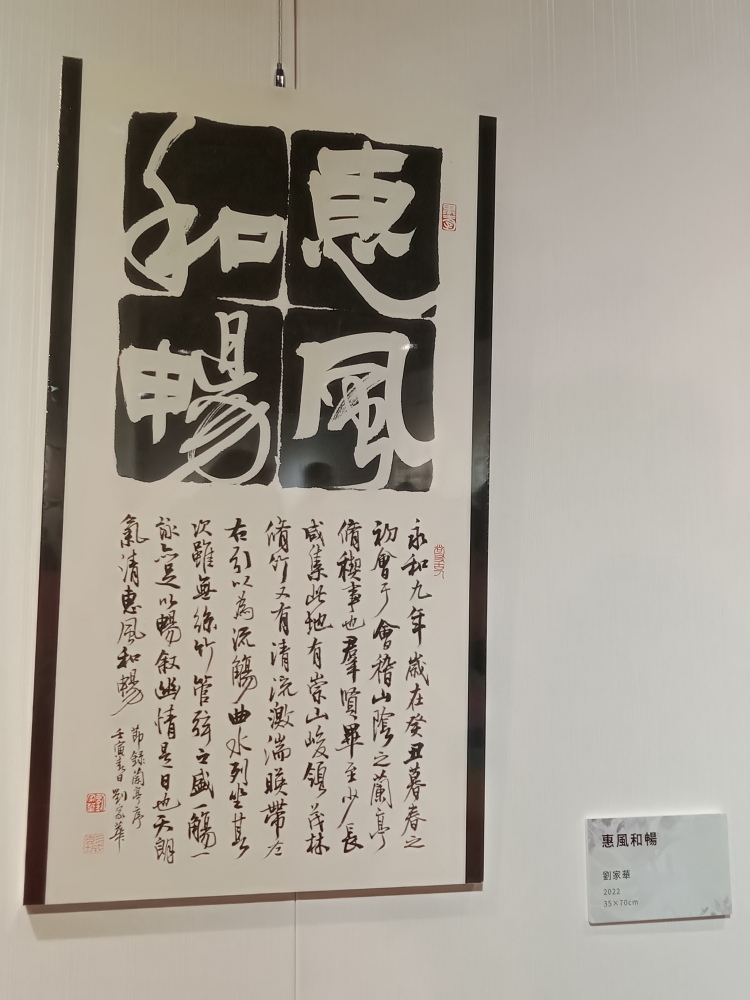 惠風
和暢
永和九年歲在癸丑暮春之
初會于會稽山陰之蘭亭
脩稧事也羣賢畢至少長
咸集此地有崇山峻領茂林
脩竹又有清流激湍暎帶左
右引以為流觴曲水列坐其
次雖無絲竹管弦之盛一觴一
詠亦足以暢叙幽情是日也天朗
氣清惠風和暢
節錄蘭亭序
壬寅春日劉家華
惠風和暢
劉家華
2022
35×70cm